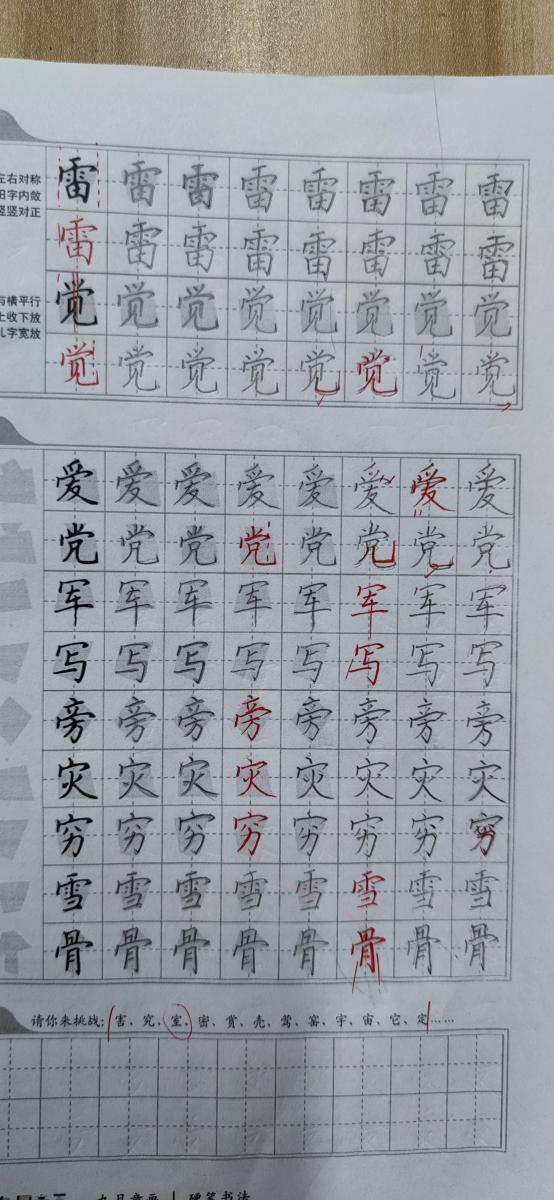 左右对称
田字内敛
竖竖对正
雷雷雷雷雷雷雷雷
雷雷雷雷雷雷雷雷
与横平行
上收下放
儿字宽放
觉觉觉觉觉觉觉觉
觉觉觉觉觉觉觉觉
爱爱爱爱爱爱爱爱
党党党党党党党党
军军军军军军军军
写写写写写写写写
旁旁旁旁旁旁旁旁
灾灾灾灾灾灾灾灾
穷穷穷穷穷穷穷穷
雪雪雪雪雪雪雪雪
骨骨骨骨骨骨骨骨
请你来挑战：害、究、室、密、赏、壳、莺、窑、宇、宙、它、定……
硬笔书法